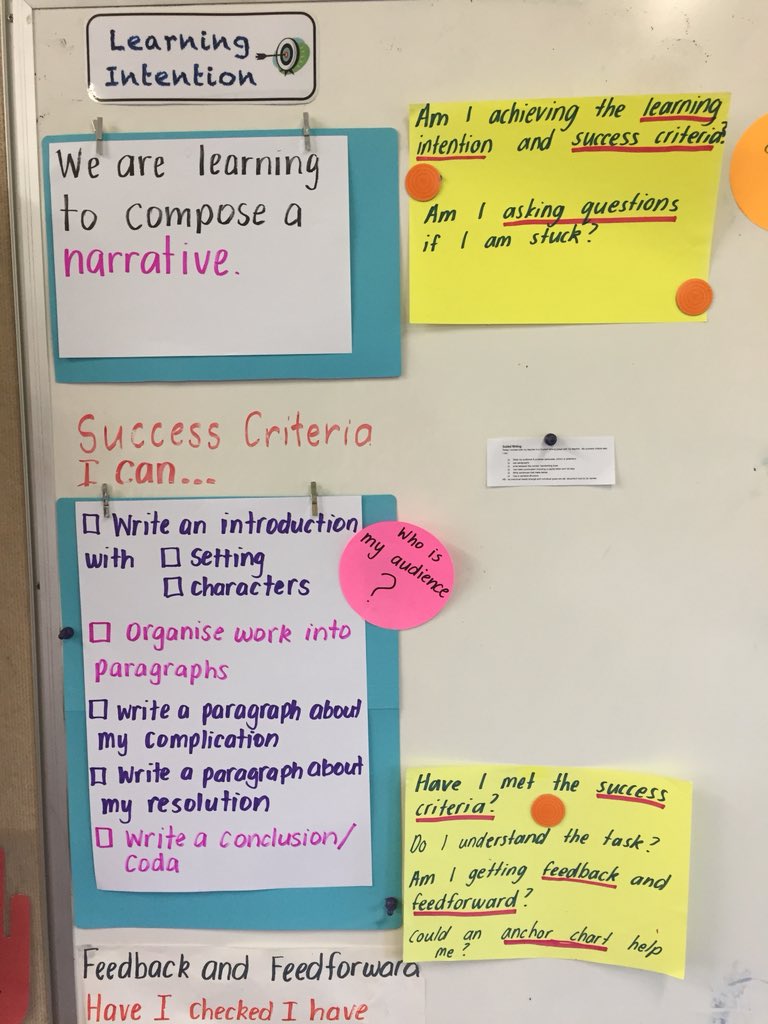 Learning
Intention
We are learning
to compose a
narrative.
Am I achieving the learning
intention and success criteria?
Am I asking questions
if I am stuck?
Success Criteria
I can...
Write an introduction
with setting
characters
Organise work into
paragraphs
Write a paragraph about
my complication
Write a paragraph about
my resolution
Write a conclusion/
Coda
Who is
my audience
?
Guided Writing
Have I met the success
criteria?
Do I understand the task?
Am I getting feedback and
feedforward?
Could an anchor chart help
me?
Feedback and Feedforward
Have I checked I have